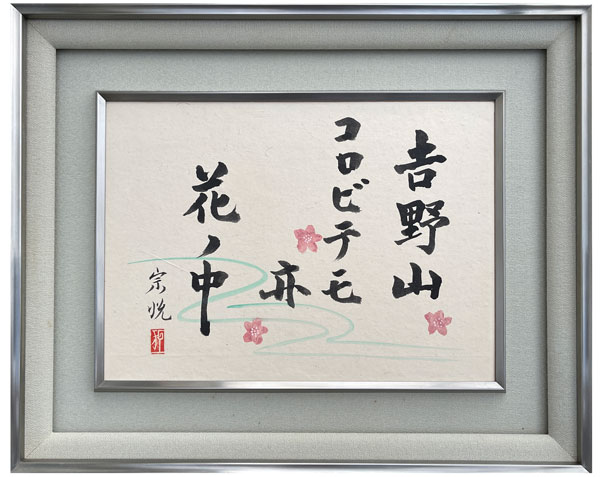 𠮷野山
コロビテモ
亦
花ノ中
宗悦